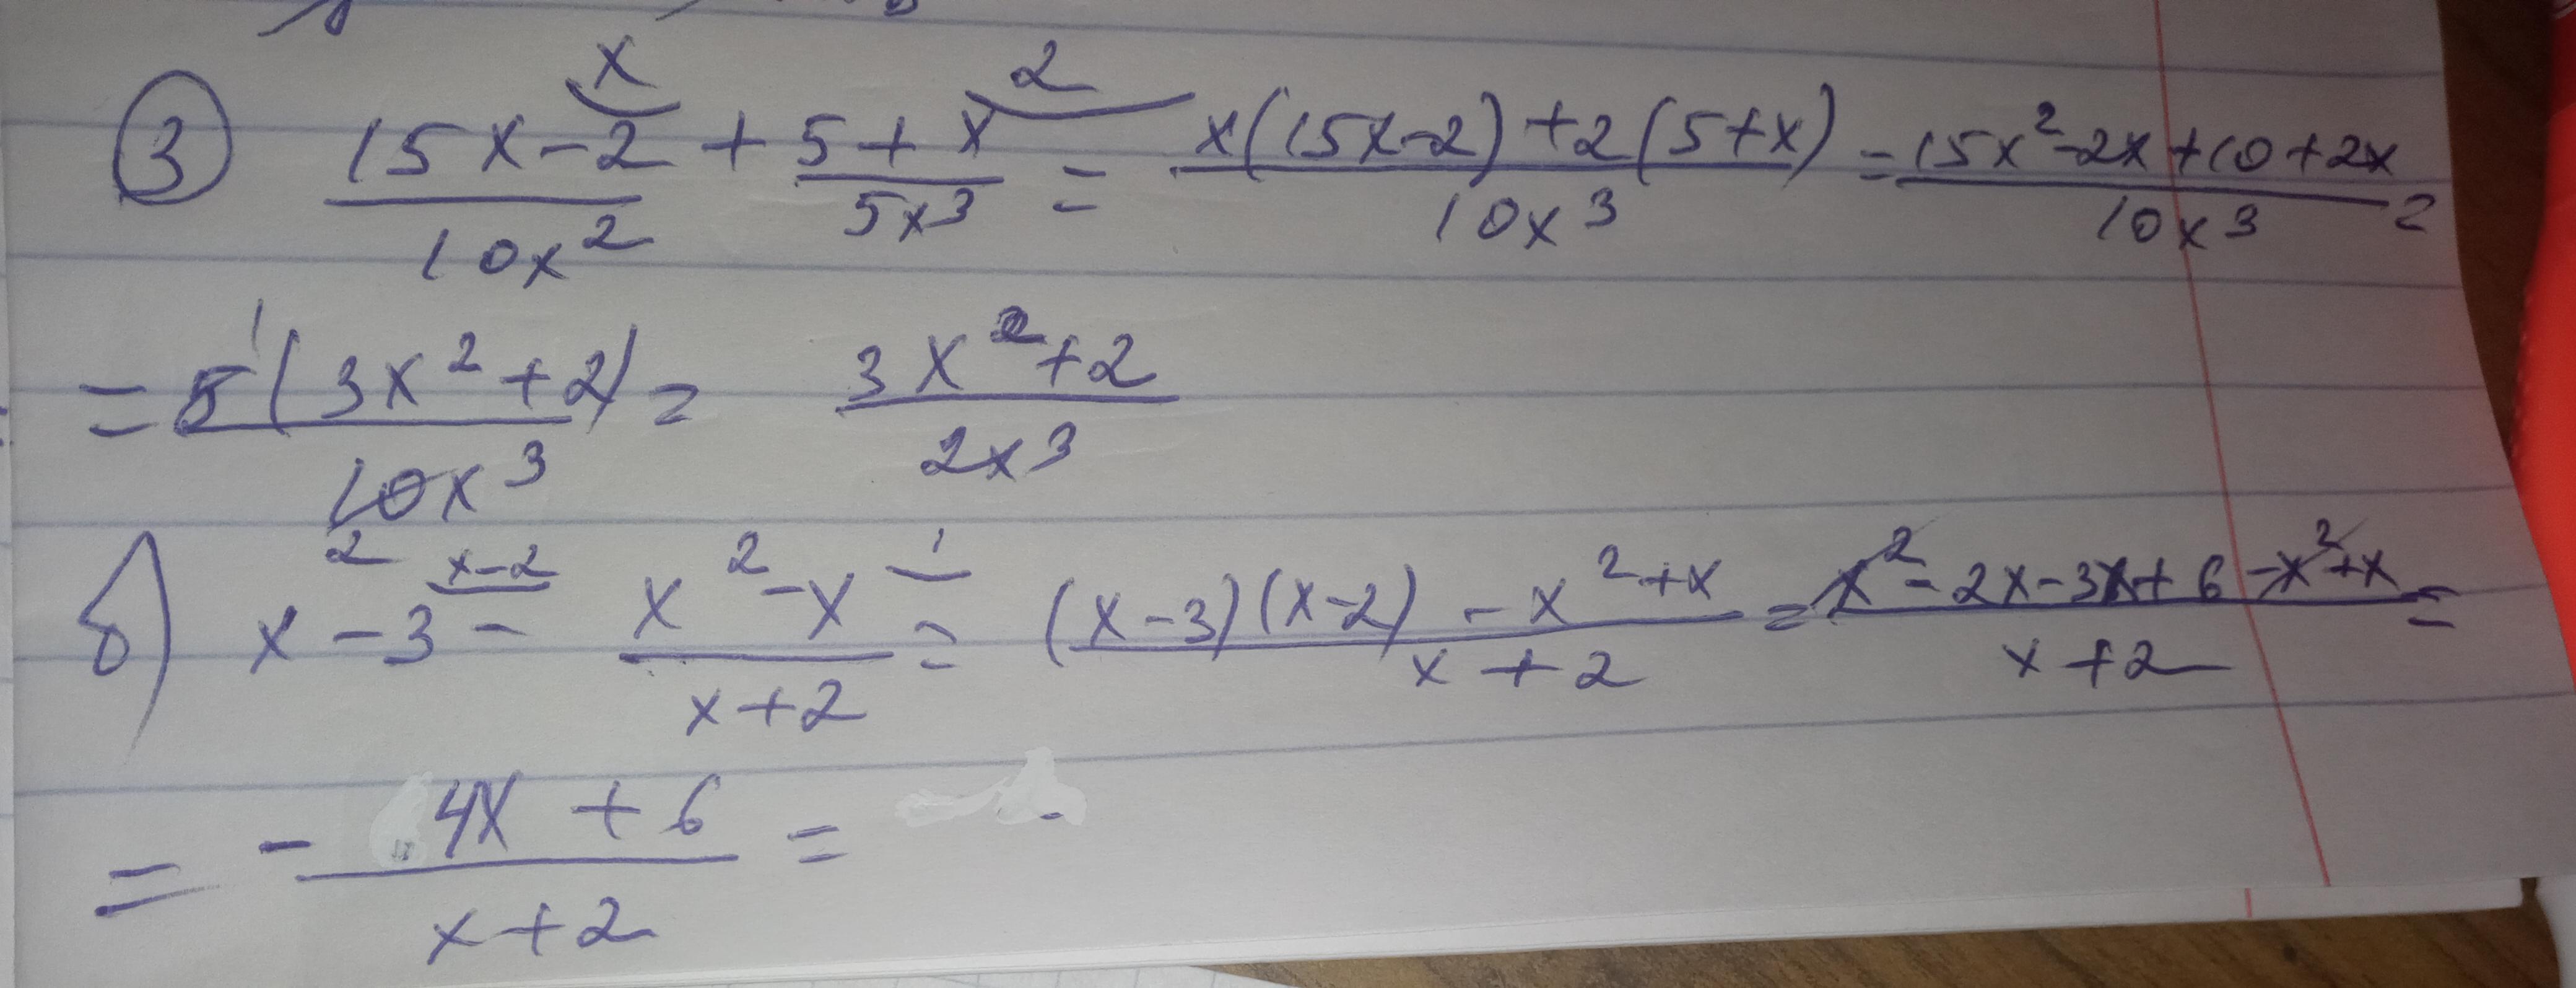 x 2
③ (15x-2)/(10x²) + (5+x)/(5x³) = (x(15x-2)+2(5+x))/(10x³) = (15x²-2x+10+2x)/(10x³) =
1
= 5(3x²+2)/(10x³) = (3x²+2)/(2x³)
2
x-2 1
б) x-3 - (x²-x)/(x+2) = ((x-3)(x-2) - x²+x)/(x+2) = (x²-2x-3x+6-x²+x)/(x+2) =
= - (4x+6)/(x+2) =